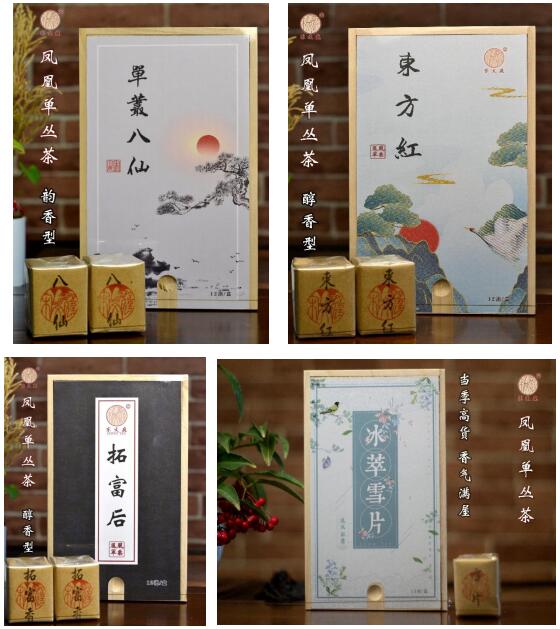 凤凰单丛茶
韵香型
單叢八仙
八仙
八仙
凤凰单丛茶
醇香型
東方紅
12泡/盒
東方紅
東方紅
凤凰单丛茶
醇香型
拓富后
拓富后
拓富后
当季高货 香气满屋
凤凰单丛茶
冰萃雪片
12泡/盒
雪片